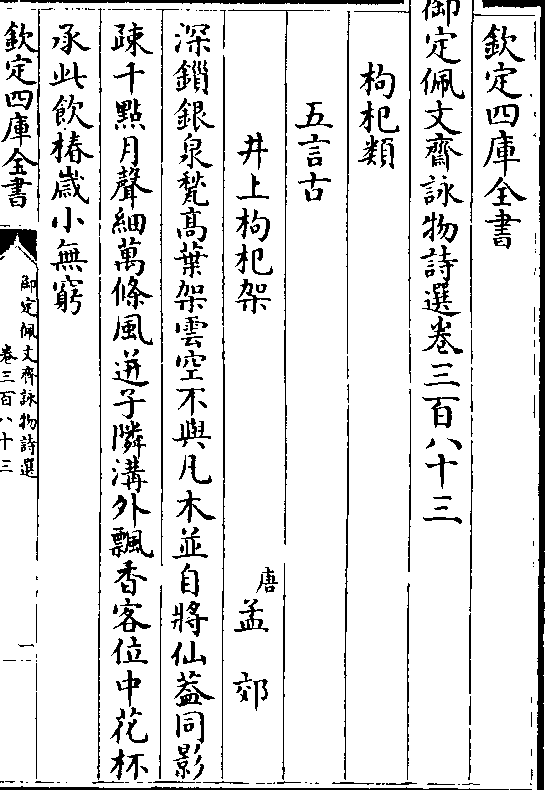 欽定四庫全書
御定佩文齋詠物詩選卷三百八十三
枸杞類
五言古
井上枸杞架 唐 孟郊
深鎖銀泉甃高葉架雲空不與凡木並自將仙葢同影
疎千點月聲細萬條風迸子隣溝外飄香客位中花杯
承此飲椿歳小無窮
欽定四庫全書
御定佩文齋詠物詩選
卷三百八十三
一